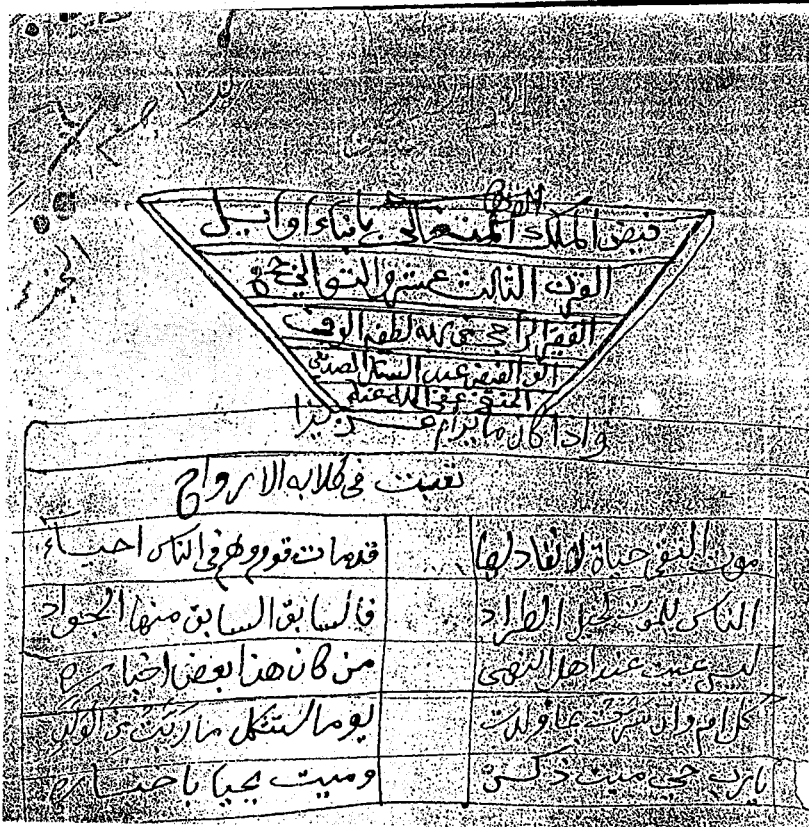 فيض الملك المتعالي بأنباء أوايل
القرن الثالث عشر والتوالي جمعه
الفقير الراجي من ربه لطفه الوفي
أبو الفيض عبد الستار الصديقي
الحنفي عفى الله عنه
واذا كان ما يرام
تعبت في طلابه الارواح
موت التقي حياة لا نفاد لها قدمات قوم وهم في الناس احياء
الناس للموت كخيل الطراد فالسابق السابق منها الجواد
ليس عند اهل النهى من كان هذا بعض اخباره
كل ام وان سرت بما ولدت يوما ستثكل ما ربت من الولد
يارب حي ميت ذكره وميت يحيا باخباره